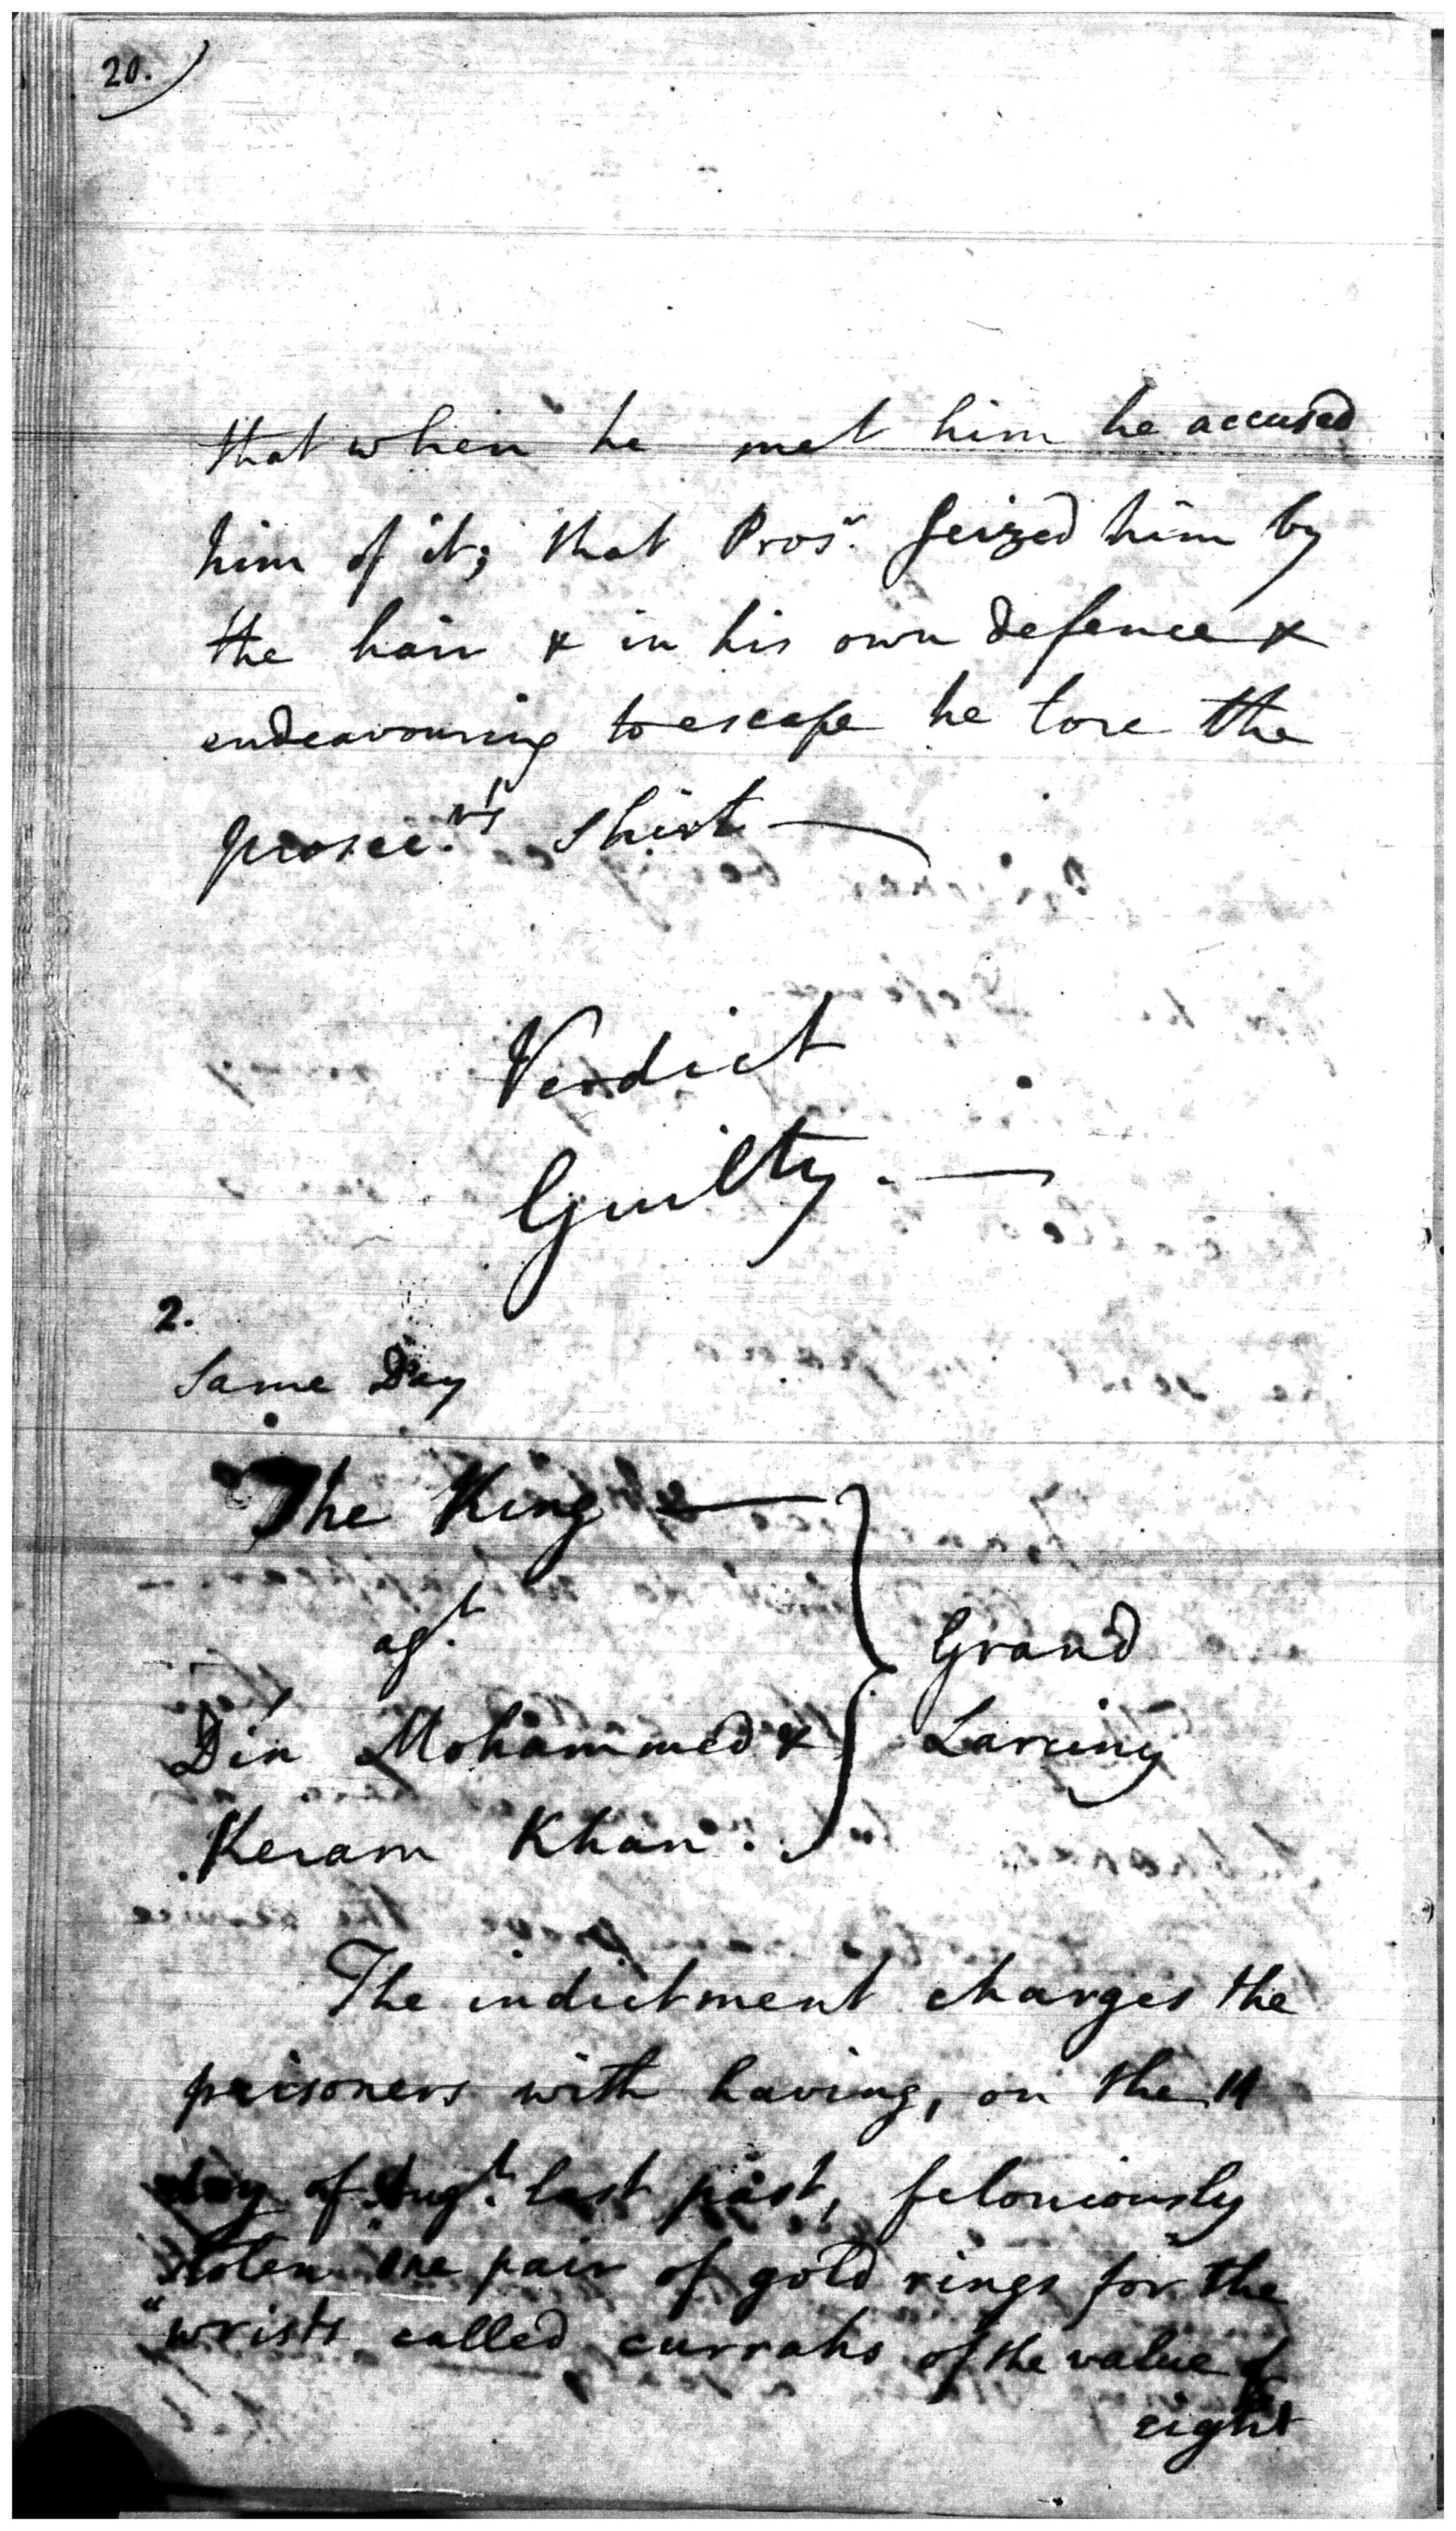 20.
that when he met him he accused
him of it; that Prosr. seized him by
the hair & in his own defence &
endeavouring to escape he tore the
prosec.r's shirt —
Verdict
Guilty. —
2.
Same Day
The King —
agt.
Din Mohammed &
Keram Khan.
Grand
Larciny
The indictment charges the
prisoners with having, on the
day of Augt. last past, feloniously
stolen "one pair of gold rings for the
"wrists called currahs of the value of
eight